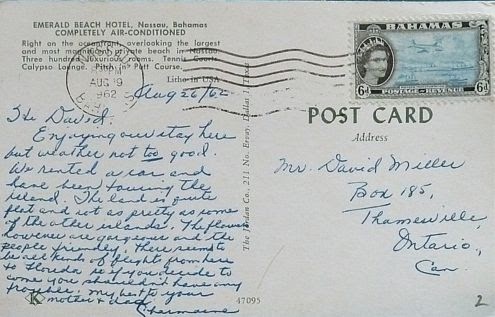 EMERALD BEACH HOTEL, Nassau, Bahamas
COMPLETELY AIR-CONDITIONED
Right on the oceanfront, overlooking the largest
and most magnificent private beach in Nassau.
Three hundred luxurious rooms. Tennis Courts
Calypso Lounge. Pitch n' Putt Course.
Litho in USA
NASSAU
PM
AUG 19
1962
BAHAMAS
BAHAMAS
6d POSTAGE & REVENUE 6d
Aug 26/62
Hi David,
Enjoying our stay here
but weather not too good.
We rented a car and
have been touring the
island. The land is quite
flat and not as pretty as some
of the other islands. The flowers
however are gorgeous and the
people friendly. There seems to
be all kinds of flights from here
to Florida so if you decide to
come you shouldn't have any
trouble. My best to your
mother & dad
Charmaine
K
47095
The Jordan Co., 211 No. Ervay, Dallas 1, Texas
POST CARD
Address
Mr. David Miller
Box 185,
Thamesville,
Ontario,
Can.
2